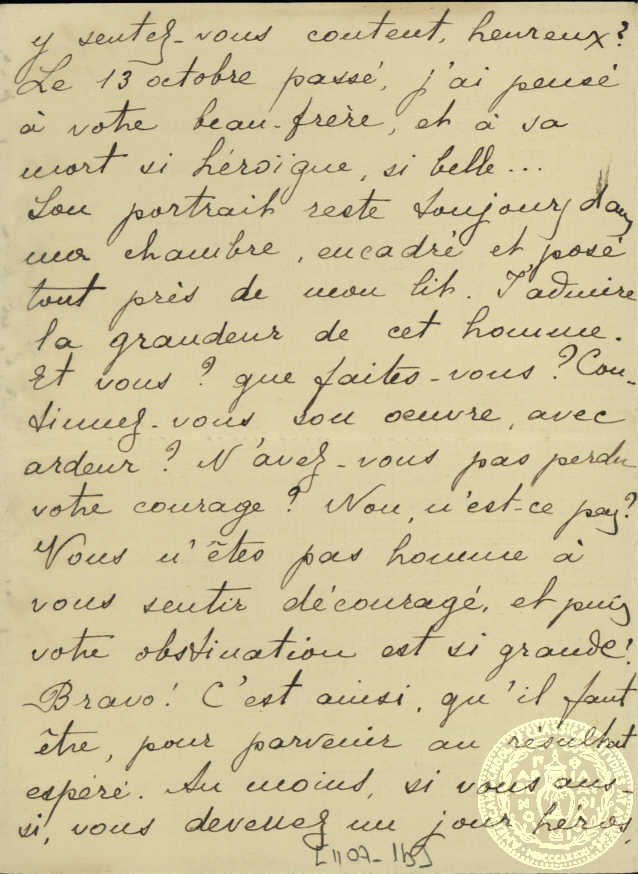 y sentez-vous content, heureux?
Le 13 octobre passé, j'ai pensé
à votre beau-frère, et à sa
mort si héroïque, si belle...
Son portrait reste toujours dans
ma chambre, encadré et posé
tout près de mon lit. J'admire
la grandeur de cet homme.
Et vous? que faites-vous? Con-
tinuez-vous son oeuvre, avec
ardeur? N'avez-vous pas perdu
votre courage? Non, n'est-ce pas?
Vous n'êtes pas homme à
vous sentir découragé, et puis
votre obstination est si grande!
Bravo! C'est ainsi, qu'il faut
être, pour parvenir au résultat
espéré. Au moins, si vous aus-
si, vous devenez un jour héros,